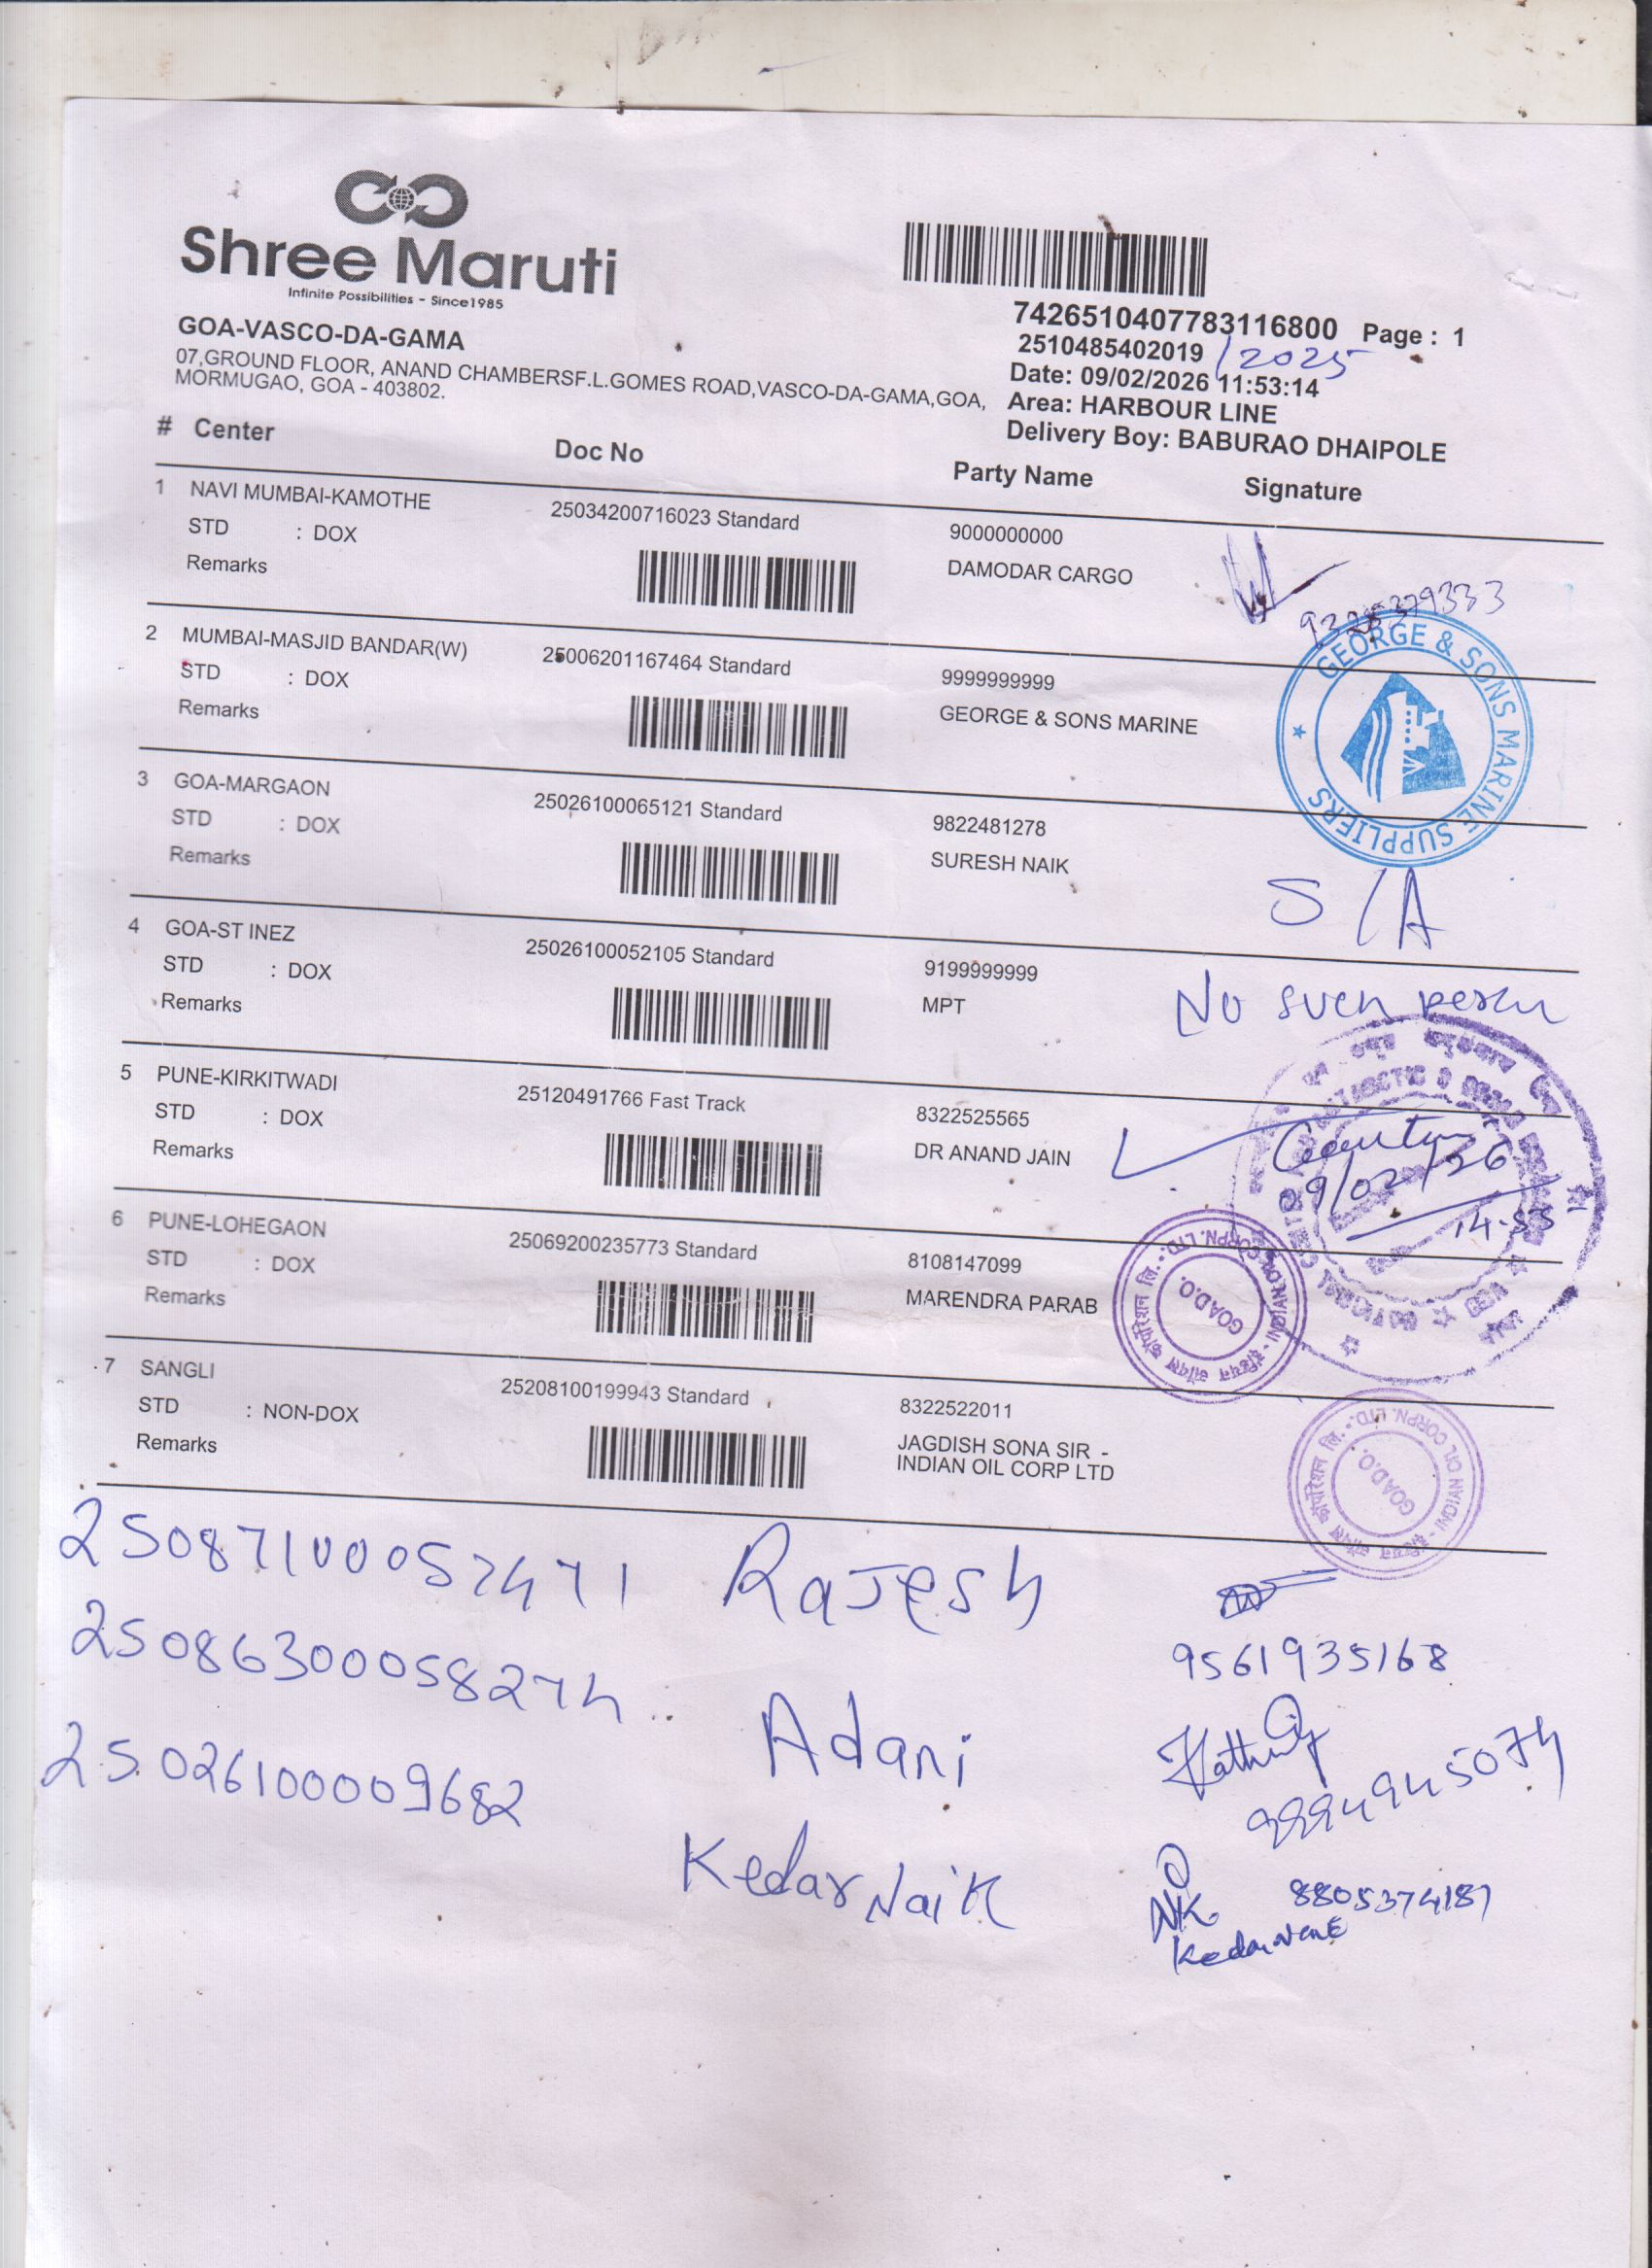 Shree Maruti
Infinite Possibilities - Since1985
GOA-VASCO-DA-GAMA
07,GROUND FLOOR, ANAND CHAMBERSF.L.GOMES ROAD,VASCO-DA-GAMA,GOA,
MORMUGAO, GOA - 403802.
7426510407783116800 Page : 1
2510485402019 /2025
Date: 09/02/2026 11:53:14
Area: HARBOUR LINE
Delivery Boy: BABURAO DHAIPOLE
# Center Doc No Party Name Signature
1 NAVI MUMBAI-KAMOTHE 25034200716023 Standard 9000000000
STD : DOX DAMODAR CARGO
Remarks
2 MUMBAI-MASJID BANDAR(W) 25006201167464 Standard 9999999999
STD : DOX GEORGE & SONS MARINE
Remarks
GEORGE & SONS MARINE SUPPLIERS
3 GOA-MARGAON 25026100065121 Standard 9822481278
STD : DOX SURESH NAIK
Remarks
S/A
4 GOA-ST INEZ 25026100052105 Standard 9199999999
STD : DOX MPT
Remarks
No such person
5 PUNE-KIRKITWADI 25120491766 Fast Track 8322525565
STD : DOX DR ANAND JAIN
Remarks
09/02/26
14-53
6 PUNE-LOHEGAON 25069200235773 Standard 8108147099
STD : DOX MARENDRA PARAB
Remarks
इंडियन ऑयल कॉर्पोरेशन लि. - INDIAN OIL CORPN. LTD.
GOA D.O.
7 SANGLI 25208100199943 Standard 8322522011
STD : NON-DOX JAGDISH SONA SIR -
INDIAN OIL CORP LTD
Remarks
इंडियन ऑयल कॉर्पोरेशन लि. - INDIAN OIL CORPN. LTD.
GOA D.O.
25087100052471 Rajesh
9561935168
25086300058274 Adani
25026100009682
Kedar Naik
8805374187
NK.